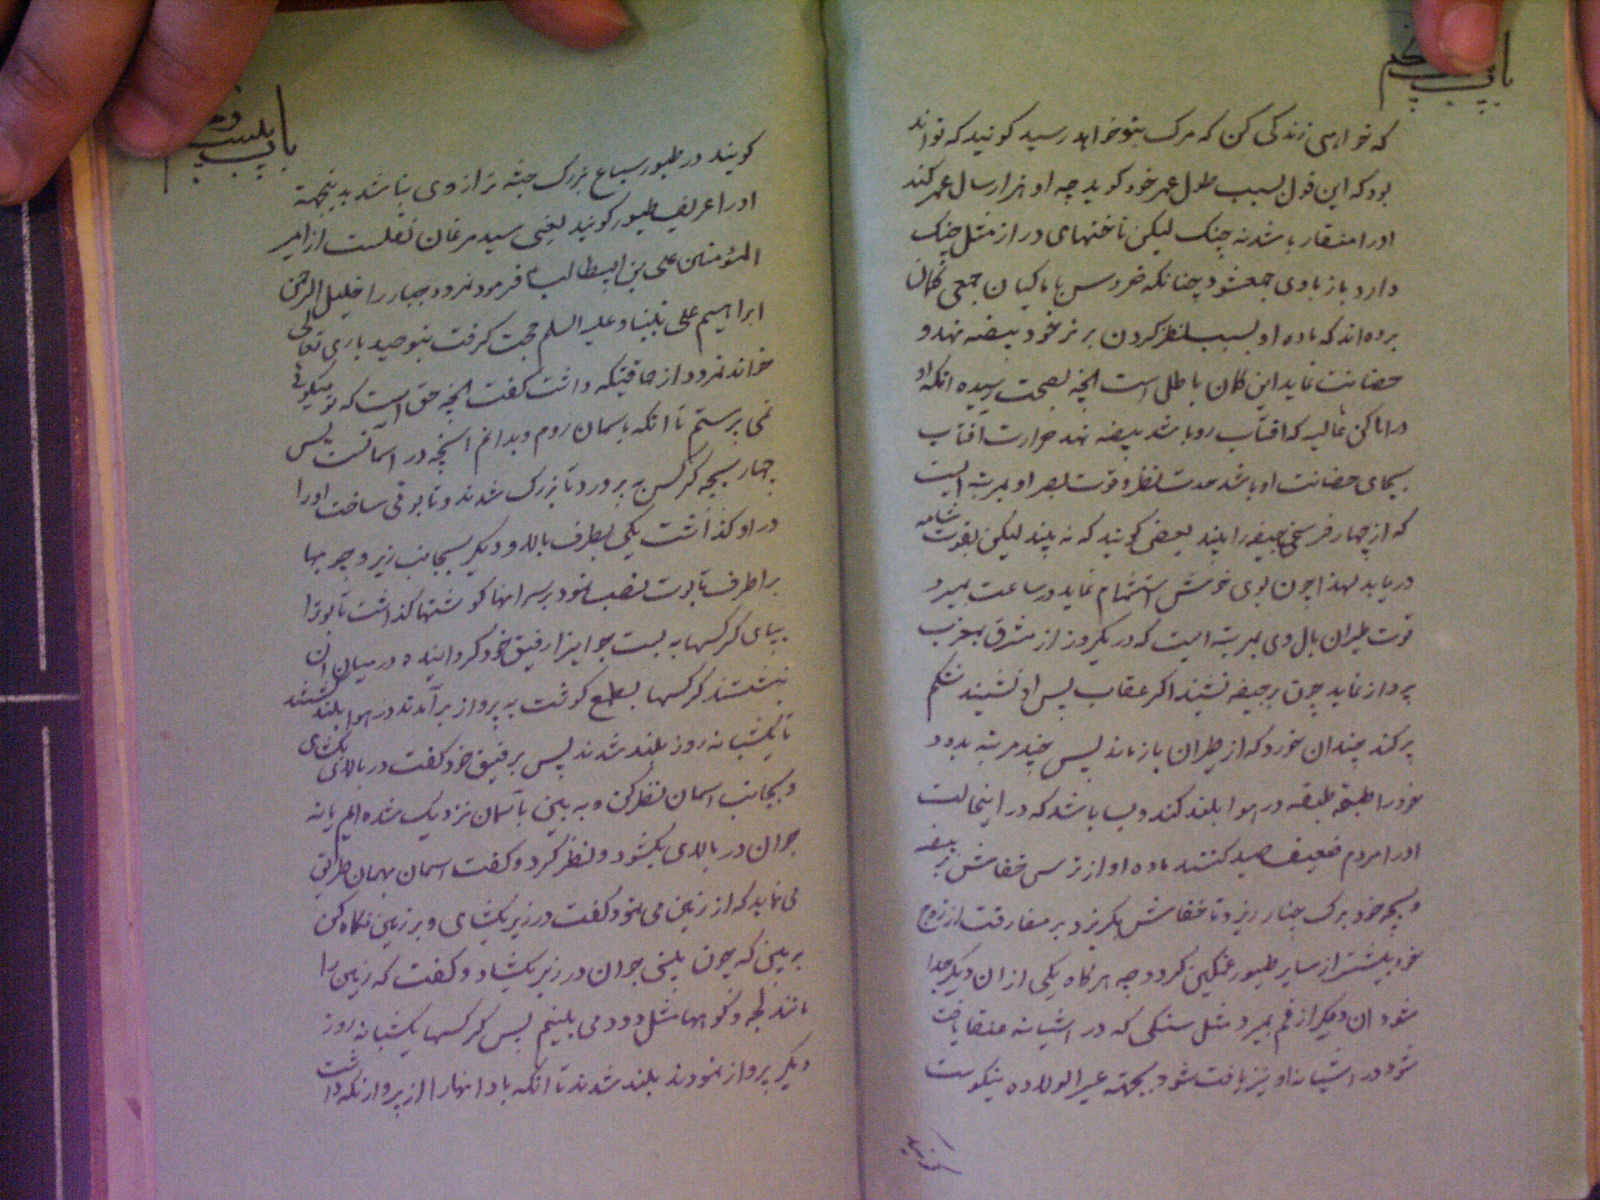 باب
که خواهی زندگی کن که مرک بتو خواهد رسید کویند که تواند
بود که این قول بسبب طول عمر خود کوید چه او هزار سال عمر کند
او را منقار باشد نه چنک لیکن ناخنهای دراز مثل چنک
دارد باز با وی جمع شود چنانکه خروس با ماکیان جمعی کمان
برده‌اند که ماده او بسبب نظر کردن بر نر خود بیضه نهد و
حضانت نماید این کمان باطل است انچه بصحت رسیده انکه او
در اماکن عالیه که افتاب رو باشد بیضه نهد حرارت افتاب
بجای حضانت او باشد حدت نظر و قوت بصر او بمرتبه ایست
که از چهار فرسخی جیفه را بیند بعضی کویند که نه بیند لیکن بقوت شامه
دریابد لهذا چون بوی خوش استشمام نماید در ساعت بمیرد
قوت طیران بال وی بمرتبه ایست که در یکروز از مشرق بمغرب
پرواز نماید چون بر جیفه نشیند اکر عقاب پس او نشیند شکم
پر کند چندان خورد که از طیران باز ماند پس چند مرتبه بدود
خود را طبقه طبقه در هوا بلند کند و بسا باشد که در اینحالت
او را مردم ضعیف صید کنند ماده او از ترس خفاش بر بیضه
و بچه خود برک چنار ریزد تا خفاش بکریزد بر مفارقت از زوج
خود بیشتر از سایر طیور غمکین کردد چه هر کاه یکی از ان دیکر جدا
شود ان دیکر از غم بمیرد مثل سنکی که در اشیانه عنقا یافت
شود در اشیانه او نیز یافت شود بجهته عسر الولاده نیکوست
باب بیست و
کویند در طیور سباع بزرک جثه تر از وی نباشد بدینجهته
او را عریف طیور کویند یعنی سید مرغان نقلست از امیر
المؤمنین علی بن ابیطالب فرمود نمرود جبار را خلیل الرحمن
ابراهیم علی نبینا و علیه السلم حجت کرفت بتوحید باری تعالی
خواند نمرود از حماقتیکه داشت کفت انچه حق است که تو میکوئی
نمی پرستم تا انکه باسمان روم و بدانم انچه در اسمانست پس
چهار بچه کرکس به پرورد تا بزرک شدند و تابوتی ساخت او را
در او کذاشت یکی بطرف بالا و دیکر بجانب زیر و چوبها
بر اطراف تابوت نصب نمود بر سر انها کوشتها کذاشت تابوترا
بپای کرکسها به بست جوانیرا رفیق خود کردانیده در میان ان
نشستند کرکسها بطمع کوشت به پرواز بر آمدند در هوا بلند کشتند
تا یکشبانه روز بلند شدند پس بر فیق خود کفت در بالای بکشای
و بجانب اسمان نظر کن و به بین بآسمان نزدیک شده ایم یا نه
جوان در بالای بکشود و نظر کرد و کفت اسمان بهمان طریق
می نماید که از زمین می نمود کفت در زیر بکشای و بر زمین نکاه کن
به بین که چون بینی جوان در زیر بکشاد و کفت که زمین را
مانند لجه و کوهها مثل دود می بینم پس کرکسها یکشبانه روز
دیکر پرواز نمودند بلند شدند تا انکه باد انهارا از پرواز نکه داشت